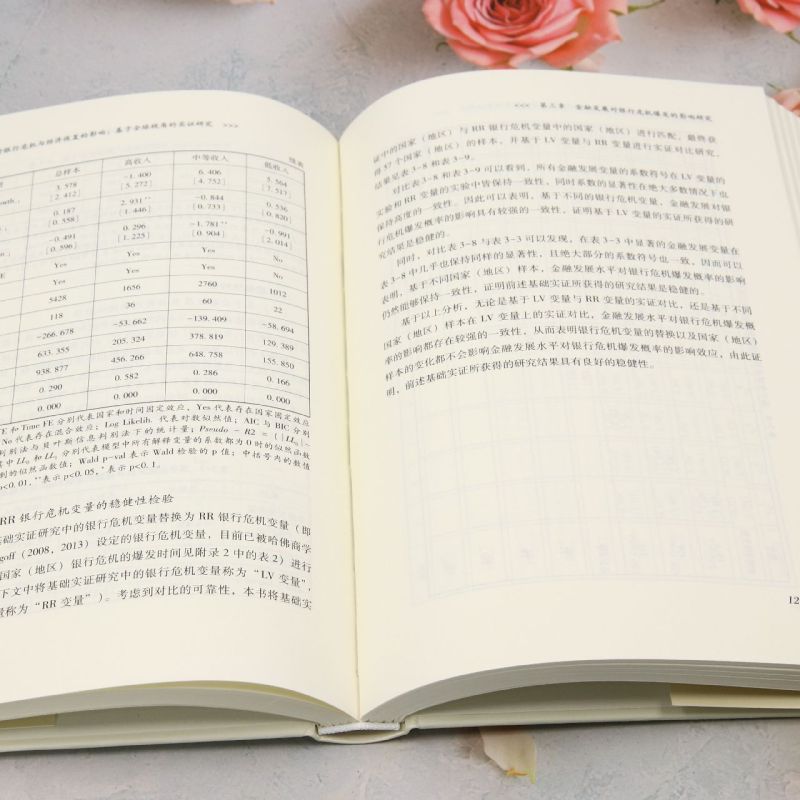 银行危机与经济恢复的影响：基于全球视角的实证研究 >>>
续表
总样本 高收入 中等收入 低收入
3.578 -1.400 6.406 5.564
[2.412] [5.272] [4.752] [7.517]
0.187 2.931** -0.844 0.536
[0.558] [1.446] [0.733] [0.820]
-0.491 0.296 -1.781** -0.991
[0.596] [1.225] [0.904] [2.014]
Yes Yes Yes No
Yes Yes Yes No
5428 1656 2760 1012
118 36 60 22
-266.678 -53.662 -139.409 -58.694
633.355 205.324 378.819 129.389
938.877 456.266 648.758 155.850
0.290 0.582 0.286 0.166
0.000 0.000 0.000 0.000
E 和 Time FE 分别代表国家和时间固定效应，Yes 代表存在国家固定效应
No 代表存在混合效应；Log Likelih. 代表对数似然值；AIC 与 BIC 分别
判别法与贝叶斯信息判别法下的统计量；Pseudo - R2 = (|LL0|-
其中 LL0 和 LL1 分别代表模型中所有解释变量的系数都为 0 时的似然函数
到的似然函数值；Wald p-val 表示 Wald 检验的 p 值；中括号内的数值
p<0.01，**表示 p<0.05，*表示 p<0.1。
RR 银行危机变量的稳健性检验
基础实证研究中的银行危机变量替换为 RR 银行危机变量（即
goff (2008, 2013) 设定的银行危机变量，目前已被哈佛商学
国家（地区）银行危机的爆发时间见附录 2 中的表 2）进行
下文中将基础实证研究中的银行危机变量称为“LV 变量”，
量称为“RR 变量”）。考虑到对比的可靠性，本书将基础实
<<< 第三章 金融发展对银行危机爆发的影响研究
证中的国家（地区）与 RR 银行危机变量中的国家（地区）进行匹配，最终获
得 57 个国家（地区）的样本，并基于 LV 变量与 RR 变量进行实证对比研究，
结果见表 3-8 和表 3-9。
对比表 3-8 和表 3-9 可以看到，所有金融发展变量的系数符号在 LV 变量的
实验和 RR 变量的实验中皆保持一致性，同时系数的显著性在绝大多数情况下也
保持高度的一致性。因此可以表明，基于不同的银行危机变量，金融发展对银
行危机爆发概率的影响具有较强的一致性，证明基于 LV 变量的实证所获得的研
究结果是稳健的。
同时，对比表 3-8 与表 3-3 可以发现，在表 3-3 中显著的金融发展变量在
表 3-8 中几乎也保持同样的显著性，且绝大部分的系数符号也一致，因而可以
表明，基于不同国家（地区）样本，金融发展水平对银行危机爆发概率的影响
仍然能够保持一致性，证明前述基础实证所获得的研究结果是稳健的。
基于以上分析，无论是基于 LV 变量与 RR 变量的实证对比，还是基于不同
国家（地区）样本在 LV 变量上的实证对比，金融发展水平对银行危机爆发概
率的影响都存在较强的一致性，从而表明银行危机变量的替换以及国家（地区）
样本的变化都不会影响金融发展水平对银行危机爆发概率的影响效应，由此证
明，前述基础实证所获得的研究结果具有良好的稳健性。
12